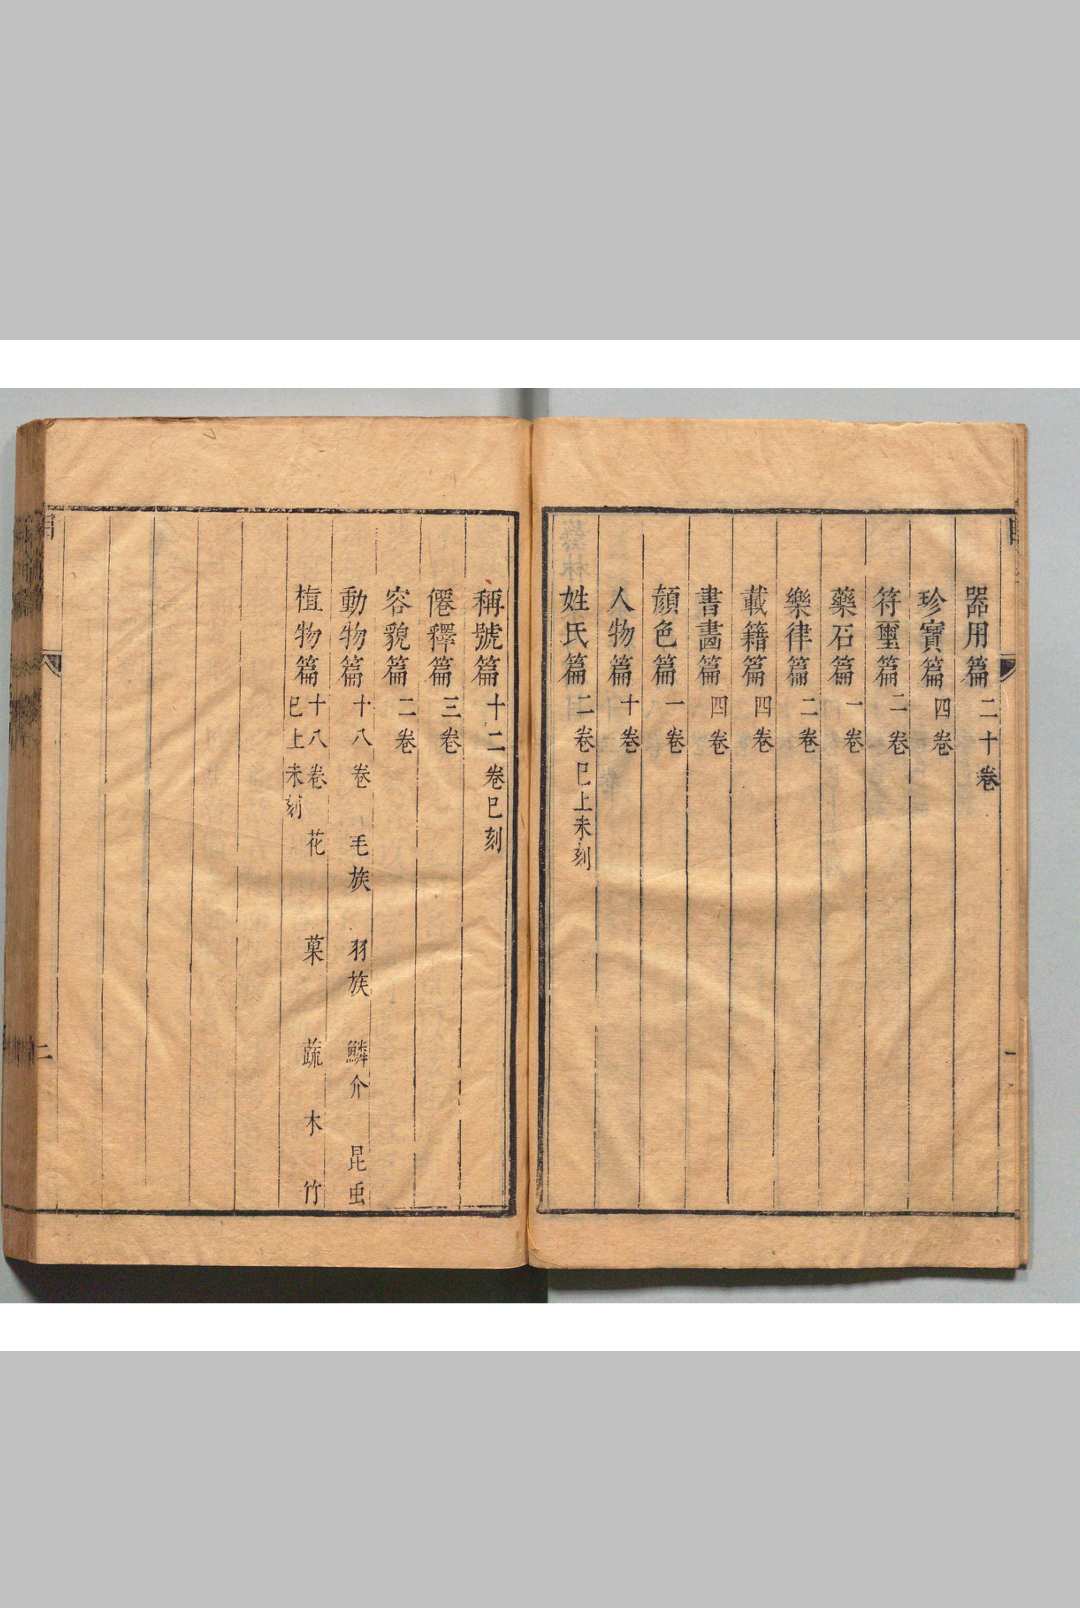 器用篇 二十卷
珍寶篇 四卷
符璽篇 二卷
藥石篇 一卷
樂律篇 二卷
載籍篇 四卷
書畵篇 四卷
顏色篇 一卷
人物篇 十卷
姓氏篇 二卷巳上未刻
一
稱號篇 十二卷巳刻
僊釋篇 三卷
容貌篇 二卷
動物篇 十八卷 毛族 羽族 鱗介 昆虫
植物篇 十八卷 花 菓 蔬 木 竹
巳上未刻
二